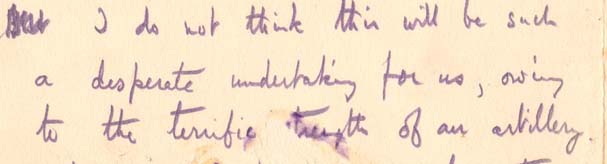 But I do not think this will be such
a desperate undertaking for us, owing
to the terrific strength of our artillery.